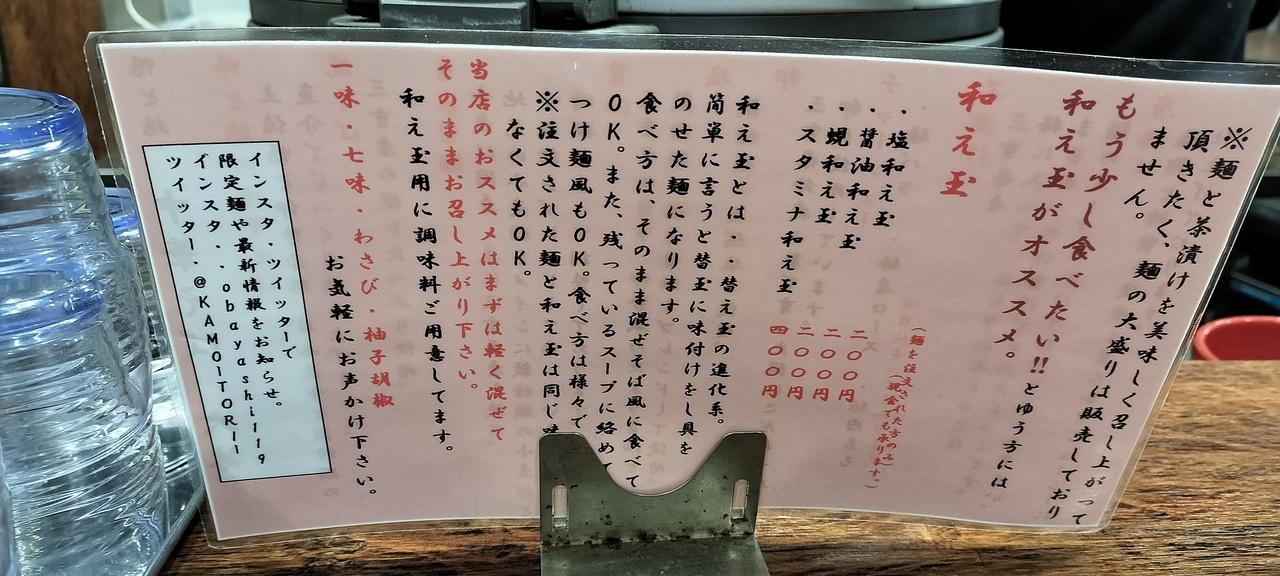 ※麺と茶漬けを美味しく召し上がって
頂きたく、麺の大盛りは販売しており
ません。
もう少し食べたい!!とゆう方には
和え玉がオススメ。
和え玉
(麺を注文された方のみ)
(現金でも承ります。)
・塩和え玉 二〇〇円
・醤油和え玉 二〇〇円
・蜆和え玉 二〇〇円
・スタミナ和え玉 四〇〇円
和え玉とは・・替え玉の進化系。
簡単に言うと替玉に味付けをし具を
のせた麺になります。
食べ方は、そのまま混ぜそば風に食べて
OK。また、残っているスープに絡めて
つけ麺風もOK。食べ方は様々で
※注文された麺と和え玉は同じ
なくてもOK。
当店のおススメはまずは軽く混ぜて
そのままお召し上がり下さい。
和え玉用に調味料ご用意してます。
一味・七味・わさび・柚子胡椒
お気軽にお声かけ下さい。
インスタ・ツイッターで
限定麺や最新情報をお知らせ。
インスタ・・obayashi1119
ツイッター・@KAMOITORII